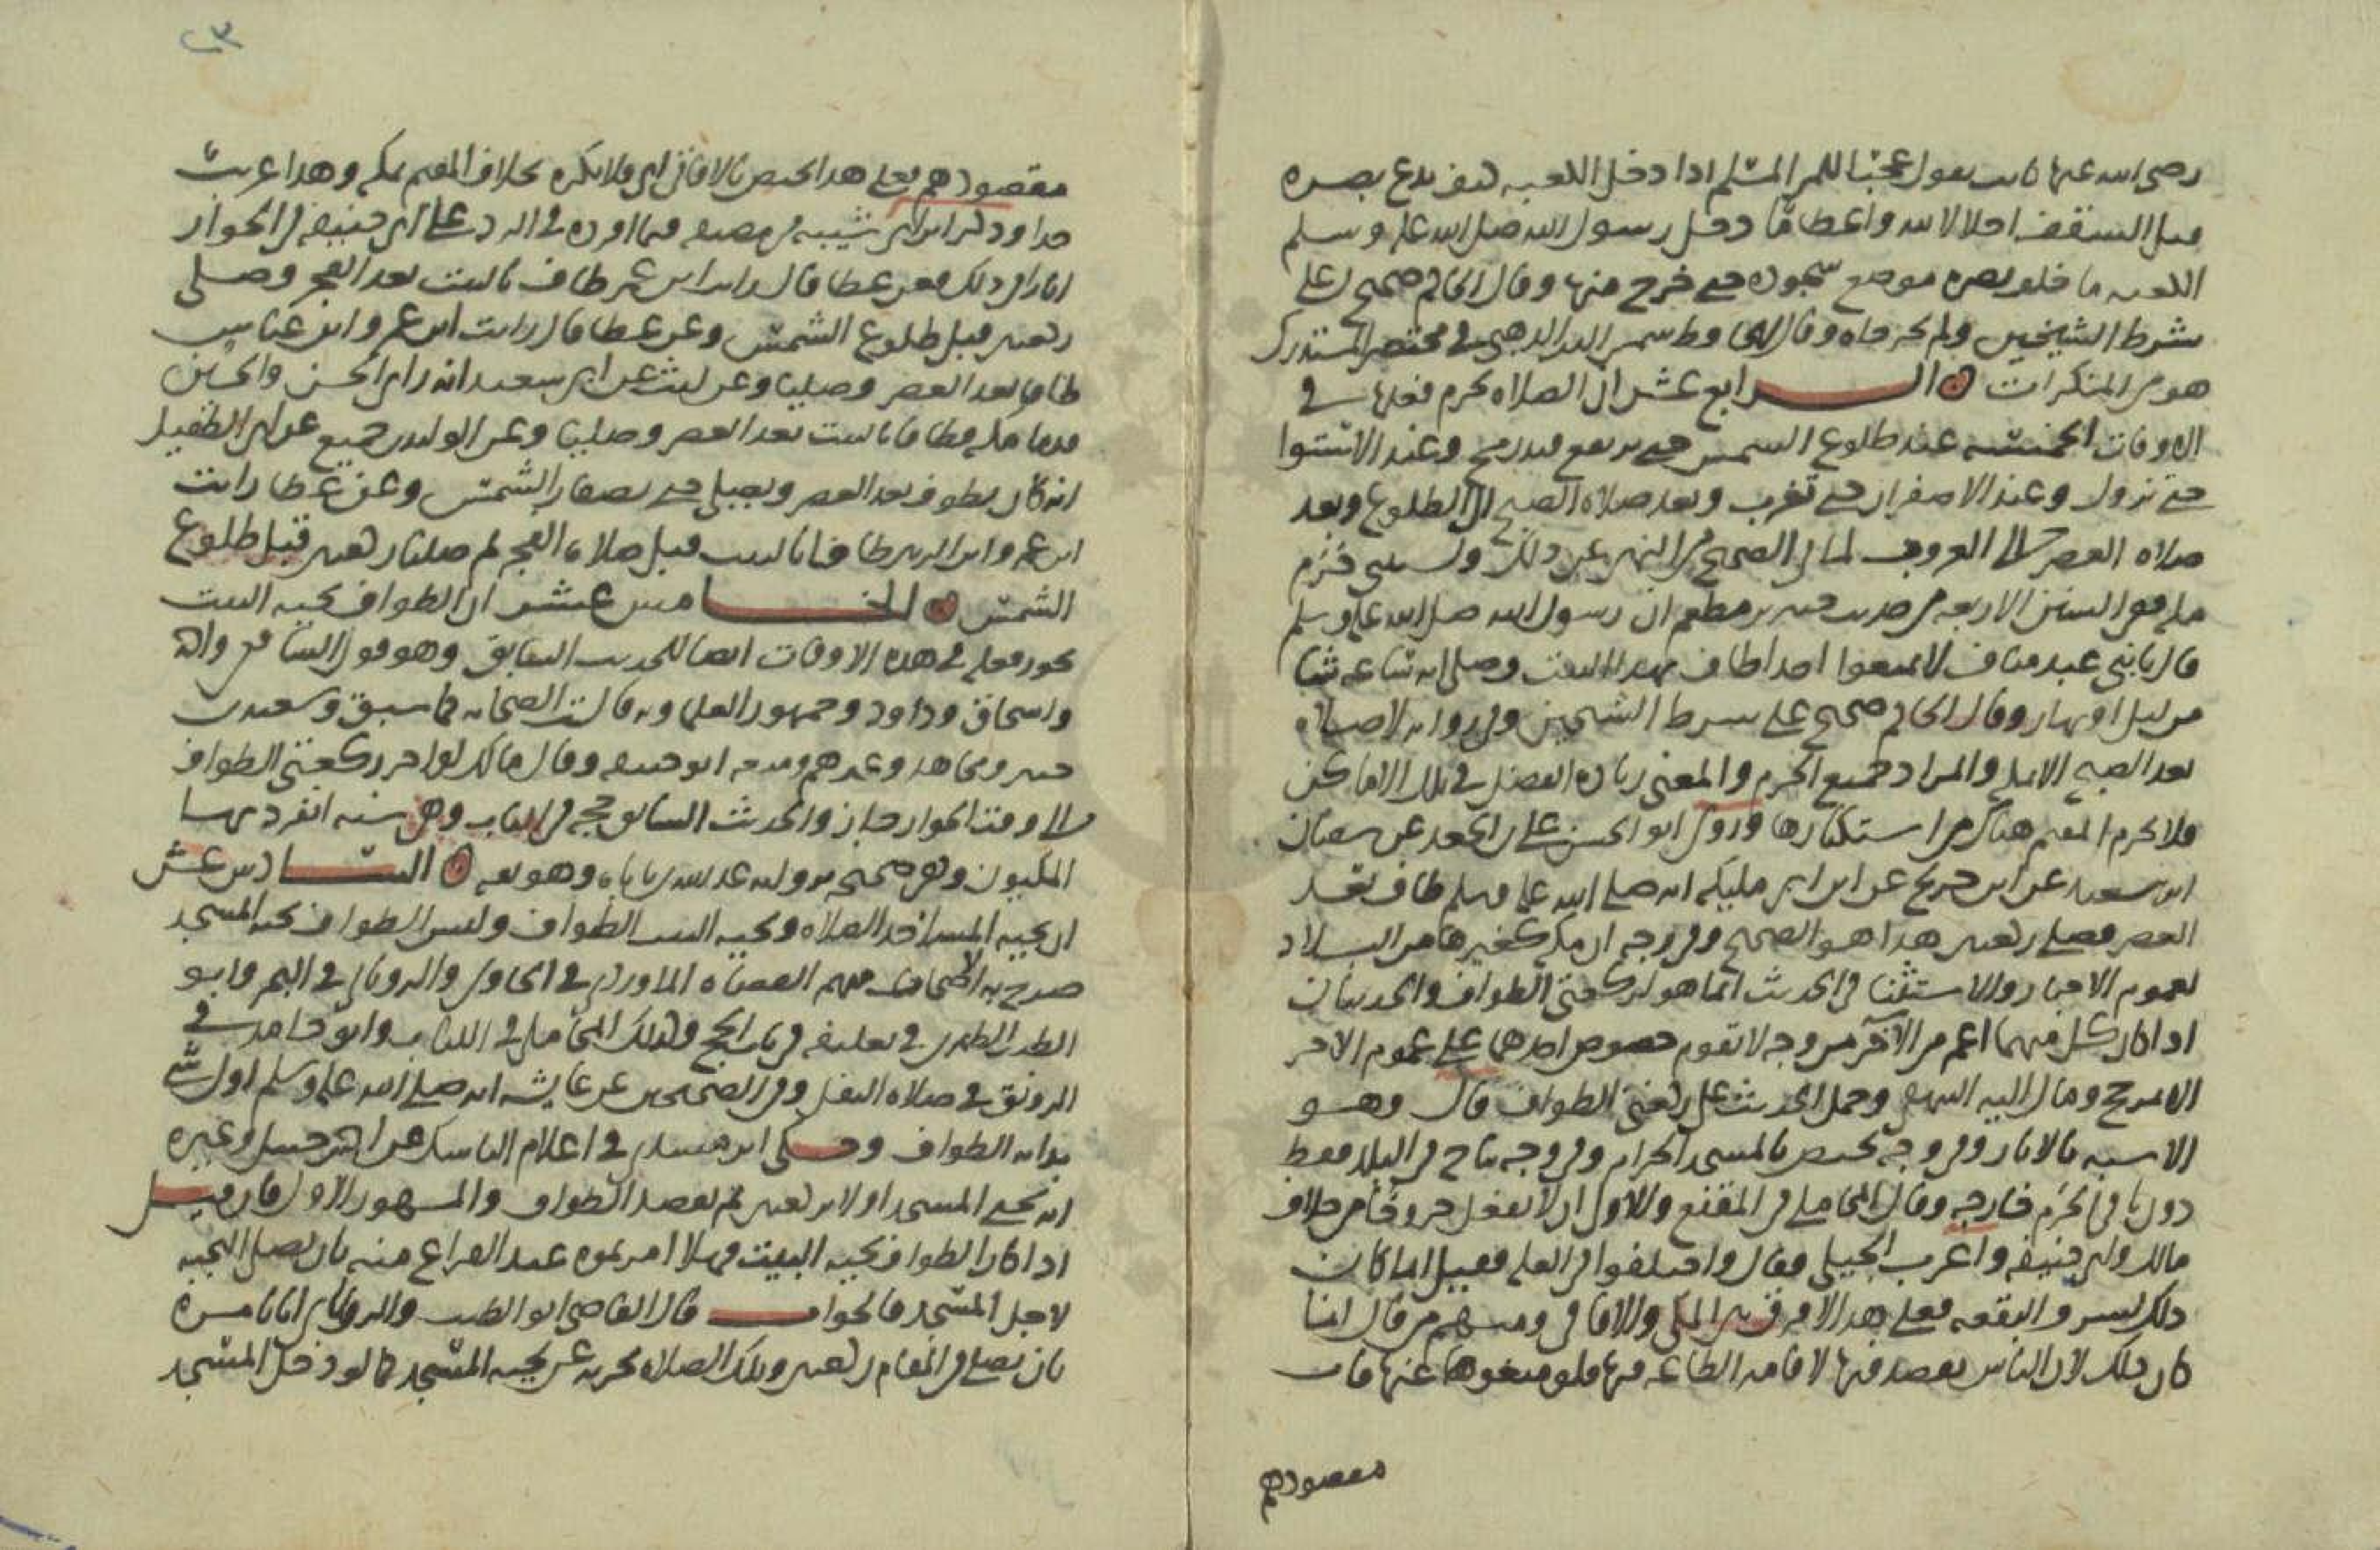 رضى الله عنها كانت تقول عجبا للمرء المسلم اذا دخل الكعبة كيف يدع بصره
قبل السقف اجلالا لله واعظاما دخل رسول الله صلى الله عليه وسلم
الكعبة ما خلف بصره موضع سجوده حتى خرج منها وقال الحاكم صحيح على
شرط الشيخين ولم يخرجاه وقال الحافظ شمس الدين الذهبي في مختصر المستدرك
هو من المنكرات الرابع عشر ان الصلاة يحرم فعلها في
الاوقات الخمسة عند طلوع الشمس حتى ترتفع قيد رمح وعند الاستوا
حتى تزول وعند الاصفرار حتى تغرب وبعد صلاة الصبح الى الطلوع وبعد
صلاة العصر الى الغروب لما في الصحيح من النهي عن ذلك ويستثنى حرم
مكة ففي السنن الاربعة من حديث جبير بن مطعم ان رسول الله صلى الله عليه وسلم
قال يا بني عبد مناف لا تمنعوا احدا طاف بهذا البيت وصلى اية ساعة شا
من ليل او نهار وقال الحاكم صحيح على شرط الشيخين وفي رواية لا صلاة
بعد الصبح الا بمكة والمراد جميع الحرم والمعنى زيادة الفضل في تلك الاماكن
فلا يحرم المقيم هناك من استكثارها وروى ابو الحسن علي بن الجعد عن سفيان
ابن سعيد عن ابن جريج عن ابن ابي مليكة انه صلى الله عليه وسلم طاف بعد
العصر فصلى ركعتين هذا هو الصحيح وفي وجه ان مكة كغيرها من البلاد
لعموم الاخبار والاستثنا في الحديث انما هو لركعتي الطواف والحديثان
اذا كان كل منهما اعم من الآخر من وجه لا تقوم خصوص احدهما على عموم الاخر
الا بمرجح ومال اليه البيهقي وحمل الحديث على ركعتي الطواف قال وهو
الاشبه بالاثار وفي وجه يختص بالمسجد الحرام وفي وجه يباح في البلد فقط
دون باقي الحرم خارجه وقال المحاملي في المقنع والاولى ان لا يفعل خروجا من خلاف
مالك وابي حنيفة واغرب الجيلي فقال واختلفوا في العلة فقيل انما كان
ذلك لشرف البقعة فعلى هذا لا فرق بين المكي والافاقي ومنهم من قال انما
كان ذلك لان الناس يقصدونها لاقامة الطاعة فيها فلو منعوها عنها فات
مقصودهم
٢٣
مقصودهم فعلى هذا يختص بالافاقي اي فلا يكره بخلاف المقيم بمكة وهذا غريب
جدا وذكر ابن ابي شيبة في مصنفه فيما اورده في الرد على ابي حنيفة في الجواز
اثارا في ذلك فعن عطا قال رايت ابن عمر طاف بالبيت بعد الفجر وصلى
ركعتين قبل طلوع الشمس وعن عطا قال رايت ابن عمر وابن عباس
طافا بعد العصر وصليا وعن ليث عن ابي سعيد انه راى الحسن والحسين
قدما مكة فطافا بالبيت بعد العصر وصليا وعن الوليد بن جميع عن ابي الطفيل
انه كان يطوف بعد العصر ويصلي حتى تصفار الشمس وعن عطا رايت
ابن عمر وابن الزبير طافا بالبيت قبل صلاة الفجر ثم صليا ركعتين قبل طلوع
الشمس الخامس عشر ان الطواف تحية البيت
يجوز فعله في هذه الاوقات ايضا للحديث السابق وهو قول الشافعي
واسحاق وداود وجمهور العلما وبه قالت الصحابة كما سبق وسعيد بن
جبير ومجاهد وغيرهم ومنعه ابو حنيفة وقال مالك يؤخر ركعتي الطواف
الى وقت الجواز جايز والحديث السابق حجة في الباب وهي سنة انفرد بها
المكيون وهو صحيح يرويه عبد الله بن باباه وهو ثقة السادس عشر
ان تحية المسجد الصلاة وتحية البيت الطواف وليس الطواف تحية المسجد
صرح به الاصحاب منهم القضاة الماوردي في الحاوي والروياني في البحر وابو
الطيب الطبري في تعليقه في باب الحج وكذلك المحاملي في اللباب وابو حامد في
الرونق في صلاة النفل وفي الصحيحين عن عايشة انه صلى الله عليه وسلم اول شي
بدا به الطواف وحكى ابن مسدي في اعلام الناسك عن احمد بن حنبل وغيره
انه يحيي المسجد اولا بركعتين ثم يقصد الطواف والمشهور الاول فان قيل
اذا كان الطواف تحية البيت فهلا امرتموه عند الفراغ منه بان يصلي التحية
لاجل المسجد فالجواب قال القاضي ابو الطيب والروياني انا نامره
بان يصلي في المقام ركعتين وتلك الصلاة تجزيه عن تحية المسجد كما لو دخل المسجد